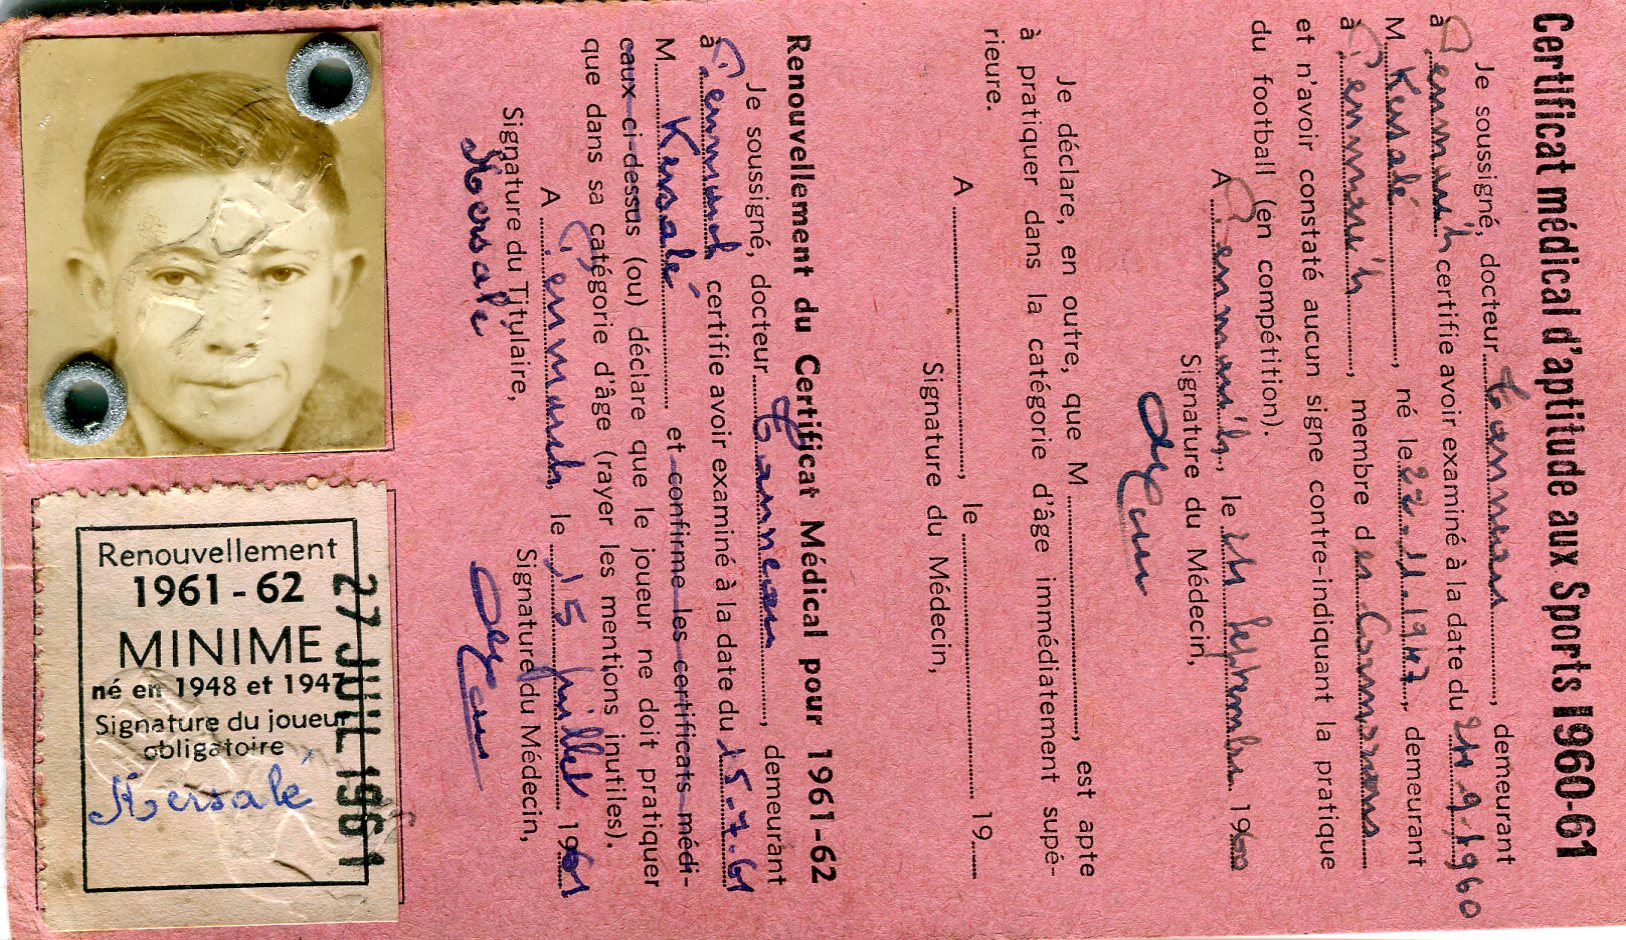 Certificat médical d'aptitude aux Sports 1960-61
Je soussigné, docteur Tanneau, demeurant
à Penmarc'h certifie avoir examiné à la date du 24.9.1960
M. Kersalé, né le 27.11.1947, demeurant
à Penmarc'h, membre des Cormorans
et n'avoir constaté aucun signe contre-indiquant la pratique
du football (en compétition).
A Penmarc'h, le 24 septembre 1960
Signature du Médecin,
Je déclare, en outre, que M., est apte
à pratiquer dans la catégorie d'âge immédiatement supé-
rieure.
A, le 19
Signature du Médecin,
Renouvellement du Certificat Médical pour 1961-62
Je soussigné, docteur Tanneau, demeurant
à Penmarch certifie avoir examiné à la date du 15.7.61
M. Kersalé et confirme les certificats médi-
caux ci-dessus (ou) déclare que le joueur ne doit pratiquer
que dans sa catégorie d'âge (rayer les mentions inutiles).
A Penmarch, le 15 juillet 1961
Signature du Titulaire, Signature du Médecin,
Kersalé
Renouvellement
1961-62
MINIME
né en 1948 et 1947
Signature du joueur
obligatoire
Kersalé
27 JUIL 1961